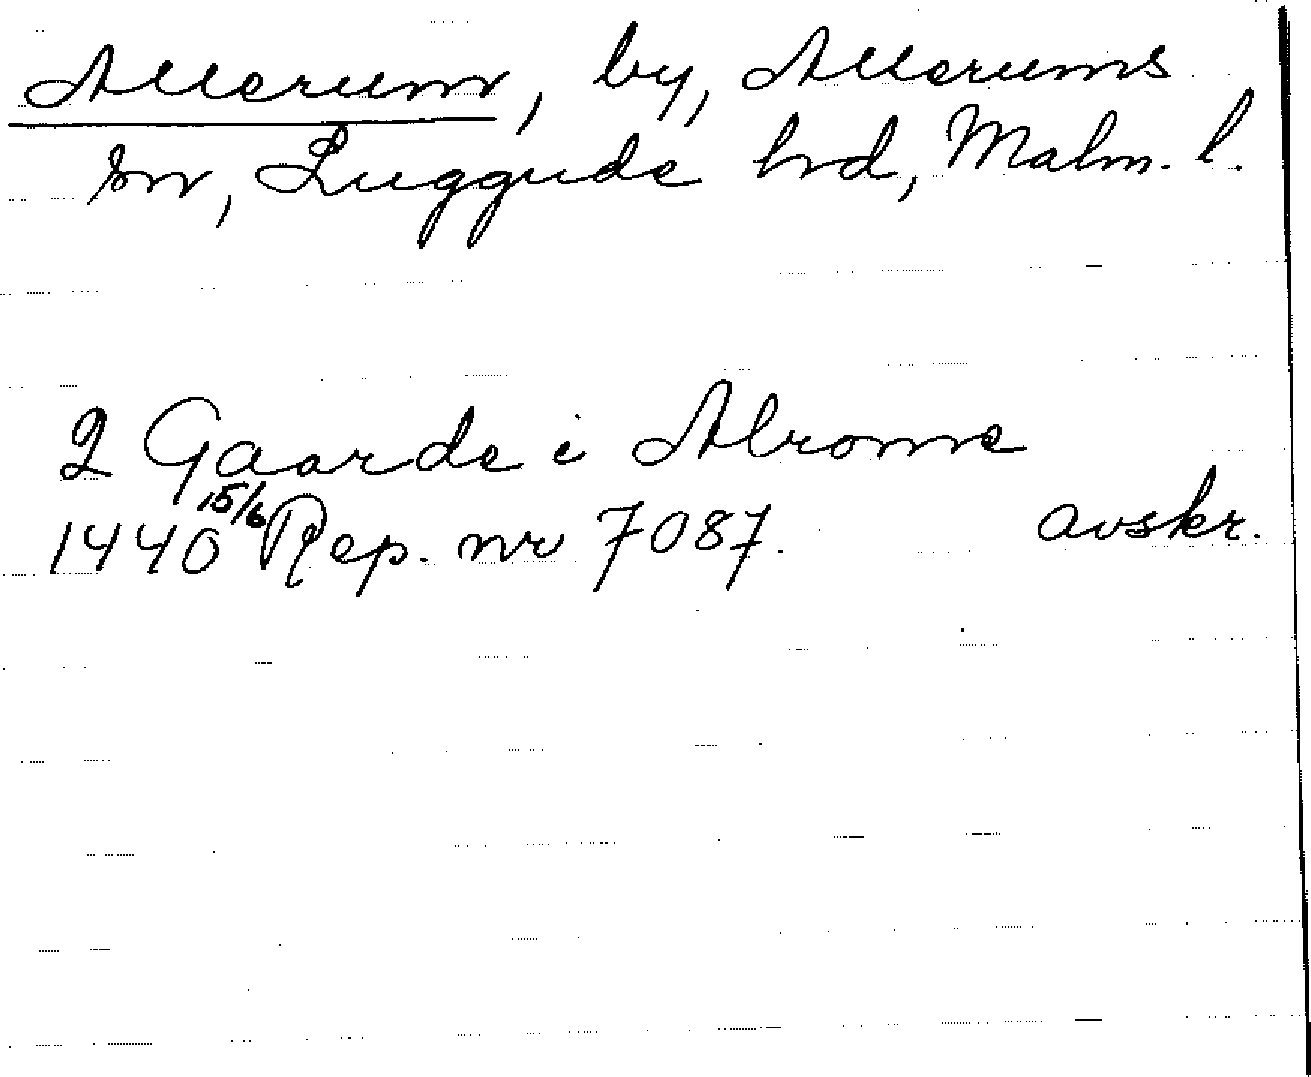 Allerum, by, Allerums
sn, Luggude hd, Malm. l.
2 Gaarde i Alrome
1440 15/6 Rep. nr 7087. avskr.